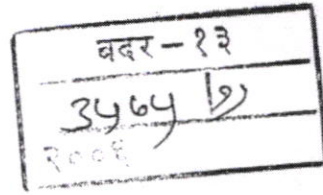 बदर - १३
३५७५ | १
२००६